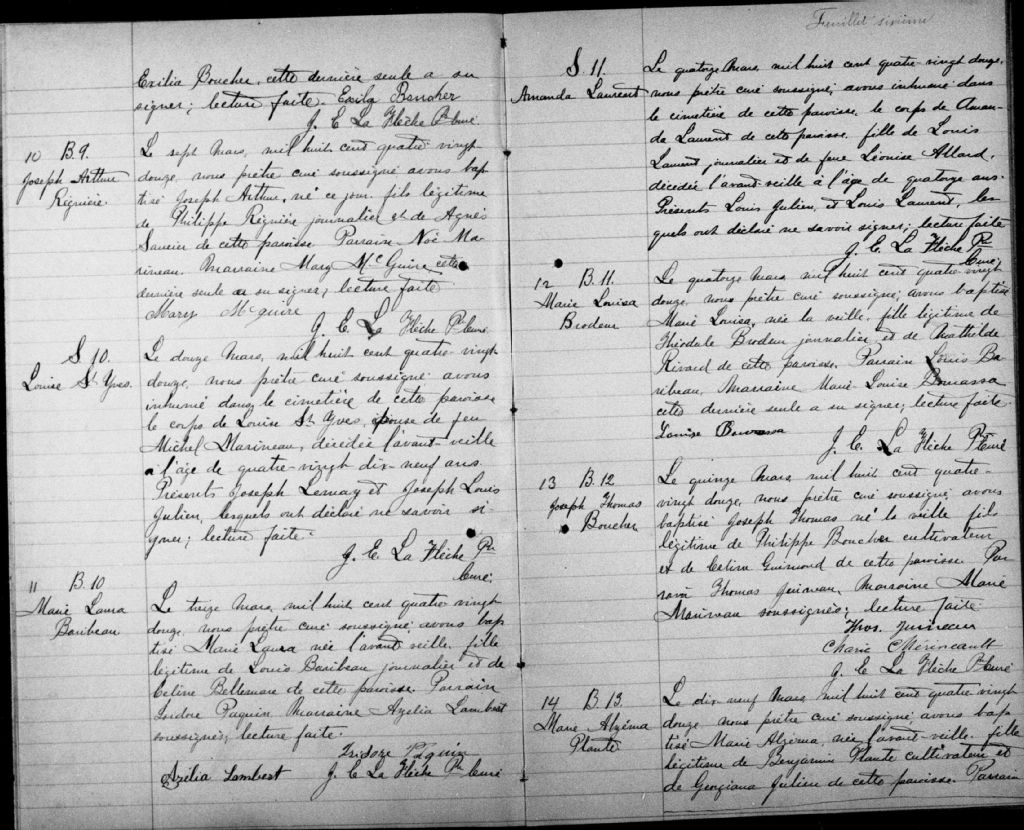 Exilia Boucher, cette dernière seule a su
signer; lecture faite. Exilia Boucher
J. E. La Flèche Ptre Curé
10 B. 9.
Joseph Arthur
Regnière.
Le sept Mars, mil huit cent quatre vingt
douze, nous prêtre curé soussigné avons bap
tisé Joseph Arthur, né ce jour, fils légitime
de Philippe Regnière journalier et de Agnès
Saucier de cette paroisse Parrain Noé Ma-
rineau. Marraine Mary Mc Guire cette
dernière seule a su signer; lecture faite
Mary McGuire
J. E. La Flèche Ptre Curé
S. 10.
Louise St Yves.
Le douze Mars, mil huit cent quatre-vingt
douze, nous prêtre curé soussigné avons
inhumé dans le cimetière de cette paroisse
le corps de Louise St Yves, épouse de feu
Michel Marineau, décédée l'avant-veille
a l'âge de quatre-vingt dix-neuf ans.
Présents Joseph Lemay et Joseph Louis
Julien, lesquels ont déclaré ne savoir si-
gner; lecture faite.
J. E. La Flèche Ptre
Curé.
11 B. 10
Marie Laura
Baribeau
Le treize Mars, mil huit cent quatre vingt
douze, nous prêtre curé soussigné, avons bap
tisé Marie Laura née l'avant veille, fille
légitime de Louis Baribeau journalier et de
Céline Bellemare de cette paroisse. Parrain
Isidore Paquin Marraine Azelia Lambert
soussignés, lecture faite.
Isidore Paquin
Azélia Lambert J. E. La Flèche Ptre Curé
Feuillet sixième
S. 11.
Amanda Laurent
Le quatorze Mars, mil huit cent quatre-vingt douze,
nous prêtre curé soussigné, avons inhumé dans
le cimetière de cette paroisse, le corps de Aman-
da Laurent de cette paroisse, fille de Louis
Laurent, journalier et de feue Léonise Allard,
décédée l'avant veille à l'âge de quatorze ans.
Présents Louis Julien, et Louis Laurent, les
quels ont déclaré ne savoir signer; lecture faite
J. E. La Flèche Ptre
Curé
12 B. 11.
Marie Louisa
Brodeur
Le quatorze Mars, mil huit cent quatre-vingt
douze, nous prêtre curé soussigné, avons baptisé
Marie Louisa, née la veille, fille légitime de
Théodule Brodeur journalier, et de Mathilde
Rivard de cette paroisse. Parrain Louis Ba
ribeau, Marraine Marie-Louise Bourassa
cette dernière seule a su signer; lecture faite.
Louise Bourassa
J. E. La Flèche Ptre Curé
13 B. 12
Joseph Thomas
Boucher
Le quinze Mars, mil huit cent quatre-
vingt douze, nous prêtre curé soussigné, avons
baptisé Joseph Thomas né la veille fils
légitime de Philippe Boucher cultivateur
et de Celina Guimond de cette paroisse. Par
rain Thomas Juineau, Marraine Marie
soussignés; lecture faite
Thos. Juineau
Marie
J. E. La Flèche Ptre Curé
14 B. 13.
Marie Alzéma
Plante
Le dix neuf Mars, mil huit cent quatre vingt
douze, nous prêtre curé soussigné, avons bap
tisé Marie Alzéma, née l'avant-veille, fille
légitime de Benjamin Plante cultivateur et
de Georgiana Julien de cette paroisse. Parrain